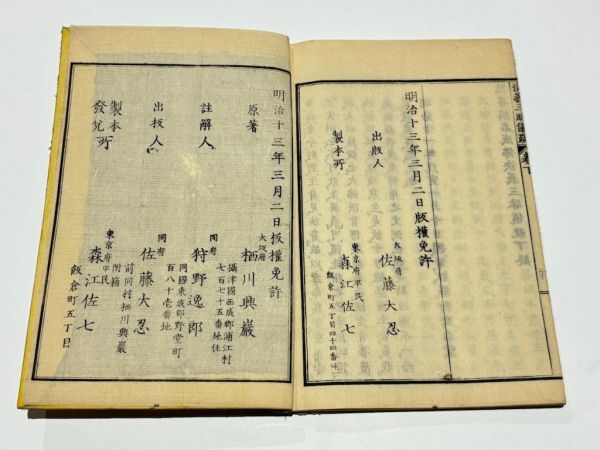 明治十三年三月二日版權免許
出版人
大坂府
佐藤大忍
製本所
東京府平民
森江佐七
飯倉町五丁目四十四番地
明治十三年三月二日版權免許
原著
大坂府
栖川興巖
攝津國西成郡浦江村
七百七十五番地住
註解人
同府
狩野逸郎
同國東成郡野堂町
百八十壱番地
出板人
同府
佐藤大忍
前同村栖川興巖
附籍
製本所
發兌
東京府平民
森江佐七
飯倉町五丁目